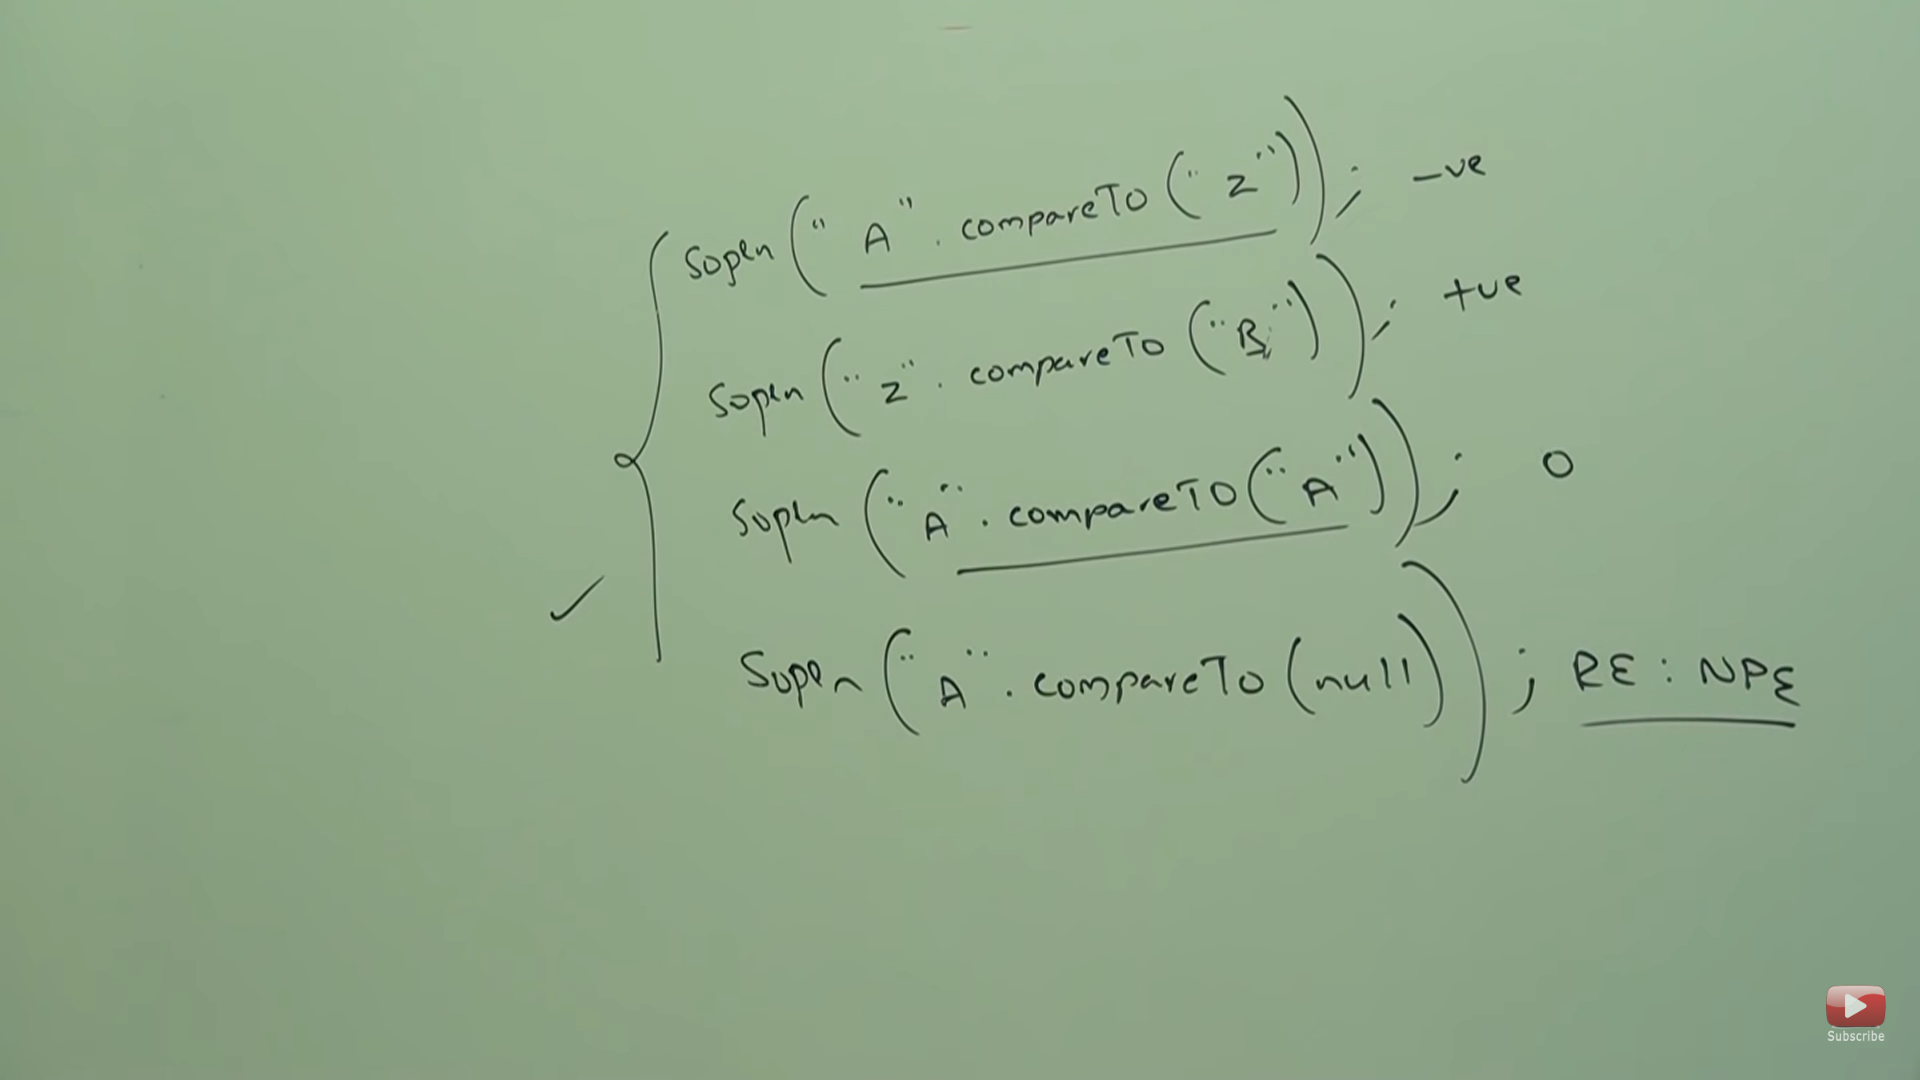 Sopln("A".compareTo("Z")); -ve
Sopln("Z".compareTo("B")); +ve
Sopln("A".compareTo("A")); 0
Sopln("A".compareTo(null)); RE: NPE
Subscribe